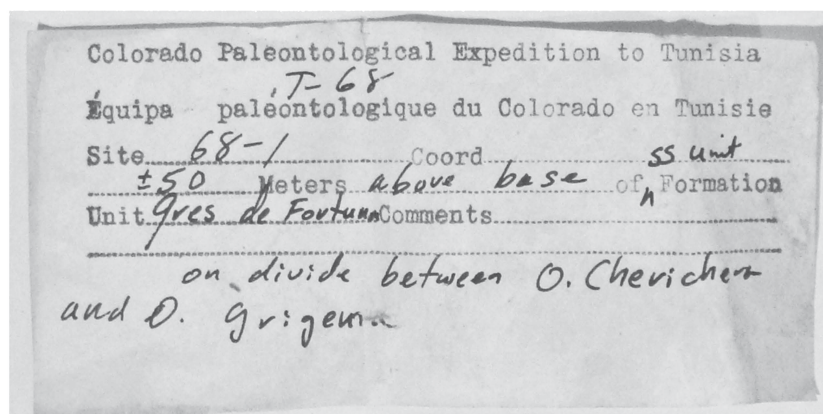 Colorado Paleontological Expedition to Tunisia
T-68
Équipa paléontologique du Colorado en Tunisie
Site 68-1 Coord ss unit
±50 Meters above base of Formation
Unit Gres de Fortuna Comments
on divide between O. Cherichera
and O. Grigema